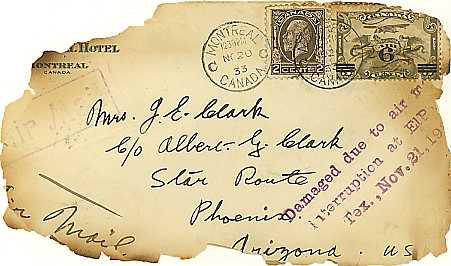 L HOTEL
MONTREAL
CANADA
MONTREAL
NO 20
33
CANADA
CANADA
2 CENTS 2
CANADA
6
AIR MAIL
Mrs. J. E. Clark
c/o Albert G. Clark
Star Route
Phoenix.
Arizona. US
Air Mail.
Damaged due to air m
interruption at ElP
Tex., Nov. 21, 19